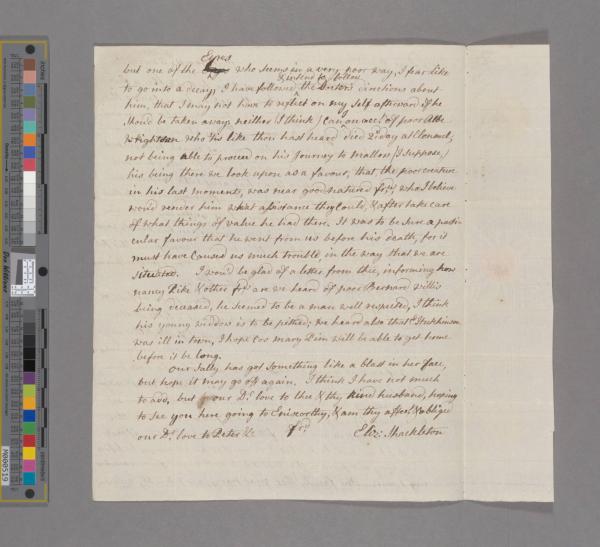 Eyes
but one of the who seems in a very poor way, I fear like
& intend to follow
to go into a decay; I have followed the Doctors directions about
him, that I may not have to reflect on my self afterward if he
shoud be taken away: neither (I think) can I on acct. of poor Abbe
Wrightson who tis like thou hast heard died 2d day at Clonmel,
not being able to proceed on his Journey to Mallow, (I suppose,)
his being there we look upon as a favour, that the poor creature
in his last moments, was near good natured frds. who I believe
woud render him what assistance they could, & after take care
of what things of value he had there. It was to be sure a parti-
cular favour that he went from us before his death, for it
must have caused us much trouble, in the way that we are
situated. I woud be glad of a letter from thee, informing how
nancy Pike & other frds are we heard of poor Barnard willis
being deceased, he seemed to be a man well respected, I think
his young widdow is to be pittied; we heard also that Hutchinson
was ill in town, I hope Cos mary Pim will be able to get home
before it be long.
our Sally has got something like a blast in her face,
but hope it may go off again. I think I have not much
to add, but our Dr. love to thee & thy kind husband, hoping
to see you here going to Eniscorthy, & am thy affect. & oblig'd
our Dr. love to Peter &c frd. Eliz: Shackleton
M000519